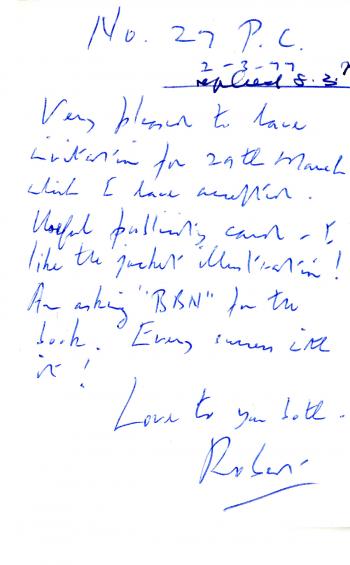 No. 27 P.C.
2-3-77
replied 8.3.7
Very pleased to have
invitation for 29th March
which I have accepted.
Useful publicity card - I
like the jacket illustration!
Am asking "BBN" for the
book. Every success with
it!
Love to you both.
Robert